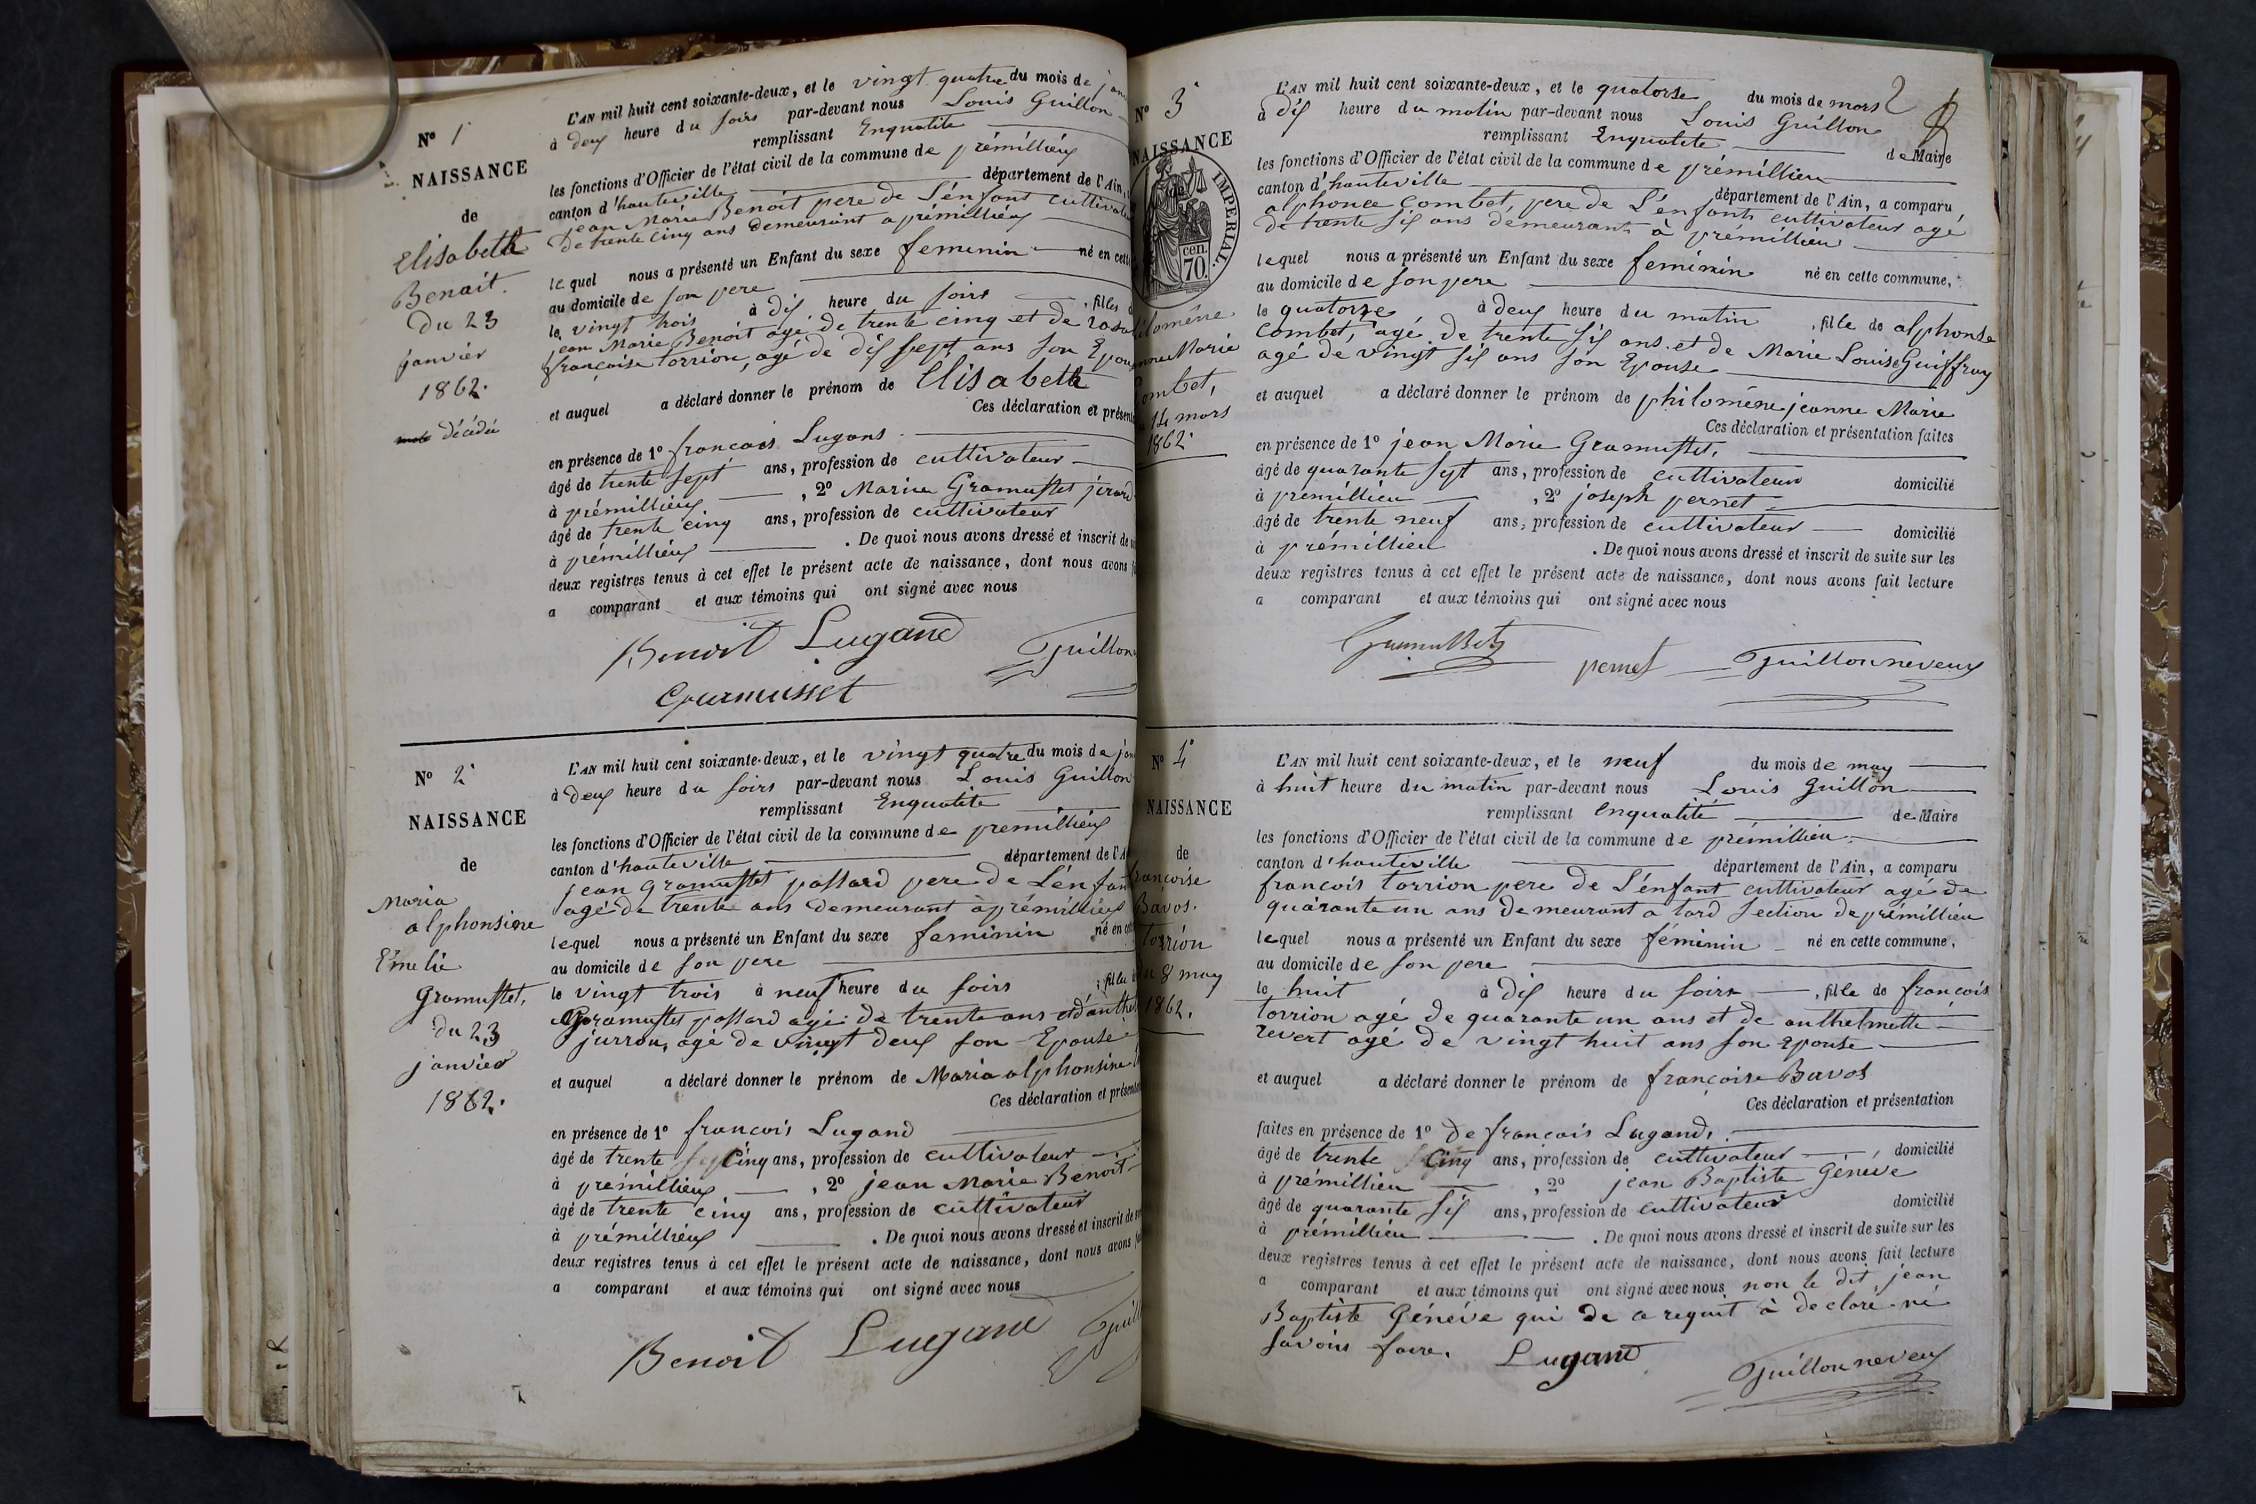 N° 1
NAISSANCE
de
Elisabeth
Benoit.
Du 23
janvier
1862.
décédée
L'AN mil huit cent soixante-deux, et le vingt quatre du mois de
à deux heure du soirs par-devant nous Louis Guillon
remplissant Enqualité
les fonctions d'Officier de l'état civil de la commune de prémillieu
canton d'hauteville département de l'Ain,
jean Marie Benoit pere de L'enfant
de trente cinq ans demeurant a prémillieu
lequel nous a présenté un Enfant du sexe femenin né en
au domicile de son pere
le vingt trois à dix heure du soirs , filles
jean Marie Benoit agé de trente cinq et de
françoise torrion, agé de dix sept ans son
et auquel a déclaré donner le prénom de Elisabeth
Ces déclaration et
en présence de 1° francois Lugans
âgé de trente sept ans, profession de cultivateur
à prémillieu , 2° Marie Gramusset
âgé de trente cinq ans, profession de cultivateur
à prémillieu . De quoi nous avons dressé et inscrit de
deux registres tenus à cet effet le présent acte de naissance, dont nous avons
a comparant et aux témoins qui ont signé avec nous
Benoit Lugand Guillon
Gramusset
N° 2
NAISSANCE
de
Maria
alphonsine
Emelie
Gramusset,
du 23
janvier
1862.
L'AN mil huit cent soixante-deux, et le vingt quatre du mois de
à deux heure du soirs par-devant nous Louis Guillon
remplissant Enqualité
les fonctions d'Officier de l'état civil de la commune de premillieu
canton d'hauteville département de
jean gramusset passard pere de L'enfant
agé de trente ans demeurant à prémillieu
lequel nous a présenté un Enfant du sexe feminin né en
au domicile de son pere
le vingt trois à neuf heure du soirs , fille
Gramusset passard agé de trente ans et
jurron, agé de vingt deux son Epouse
et auquel a déclaré donner le prénom de Maria alphonsine
Ces déclaration et
en présence de 1° francois Lugand
âgé de trente Cinq ans, profession de cultivateur
à prémillieu , 2° jean Marie Benoit
âgé de trente cinq ans, profession de cultivateur
à prémillieu . De quoi nous avons dressé et inscrit de
deux registres tenus à cet effet le présent acte de naissance, dont nous avons
a comparant et aux témoins qui ont signé avec nous
Benoit Lugand
N° 3
NAISSANCE
IMPERIAL.
cen.
70.
Marie
14 mars
1862.
2
L'AN mil huit cent soixante-deux, et le quatorze du mois de mars
à dix heure du matin par-devant nous Louis Guillon
remplissant Enqualité de Maire
les fonctions d'Officier de l'état civil de la commune de prémillieu
canton d'hauteville département de l'Ain, a comparu
alphonce Combet, pere de L'enfant cultivateur agé
de trente six ans demeurant à prémillieu
lequel nous a présenté un Enfant du sexe feminin né en cette commune,
au domicile de son pere
le quatorze à deux heure du matin , fille de alphonse
Combet, agé de trente six ans et de Marie Louise Guiffray
agé de vingt six ans son Epouse
et auquel a déclaré donner le prénom de philoméne jeanne Marie
Ces déclaration et présentation faites
en présence de 1° jean Marie Gramusset,
âgé de quarante sept ans, profession de cultivateur domicilié
à prémillieu , 2° joseph pernet
âgé de trente neuf ans, profession de cultivateur domicilié
à prémillieu . De quoi nous avons dressé et inscrit de suite sur les
deux registres tenus à cet effet le présent acte de naissance, dont nous avons fait lecture
a comparant et aux témoins qui ont signé avec nous
pernet Guillon neveux
N° 4
NAISSANCE
de
Bavos.
torrion
8 may
1862.
L'AN mil huit cent soixante-deux, et le neuf du mois de may
à huit heure du matin par-devant nous Louis Guillon
remplissant Enqualité de Maire
les fonctions d'Officier de l'état civil de la commune de prémillieu
canton d'hauteville département de l'Ain, a comparu
françois torrion pere de L'enfant cultivateur agé de
quarante un ans demeurant a tard section de prémillieu
lequel nous a présenté un Enfant du sexe féminin né en cette commune,
au domicile de son pere
le huit à dix heure du soirs , fille de françois
torrion agé de quarante un ans et de anthelmette
revert agé de vingt huit ans son Epouse
et auquel a déclaré donner le prénom de françoise Bavos
Ces déclaration et présentation
faites en présence de 1° de francois Lugand,
âgé de trente Cinq ans, profession de cultivateur domicilié
à prémillieu , 2° jean Baptiste Généve
âgé de quarante six ans, profession de cultivateur domicilié
à prémillieu . De quoi nous avons dressé et inscrit de suite sur les
deux registres tenus à cet effet le présent acte de naissance, dont nous avons fait lecture
a comparant et aux témoins qui ont signé avec nous non le dit jean
Baptiste Généve qui de a requit à declaré né
savoir faire. Lugand Guillon neveux